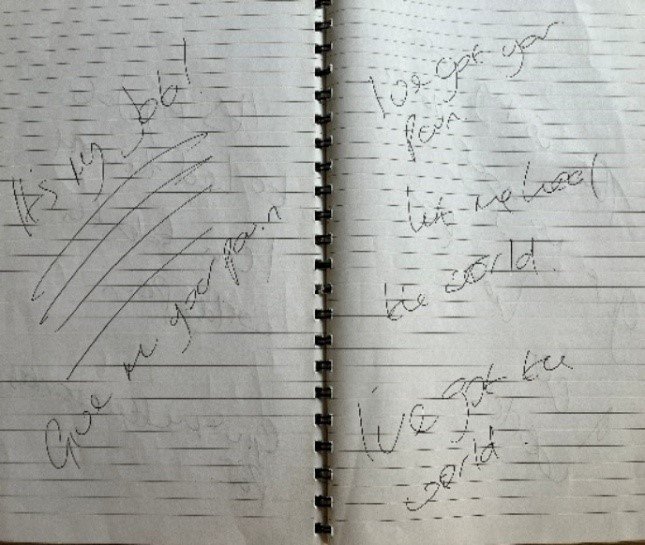 It's my Job!
Give me your pain
I've got your
pain
let me heal
the world.
I've got the
world.